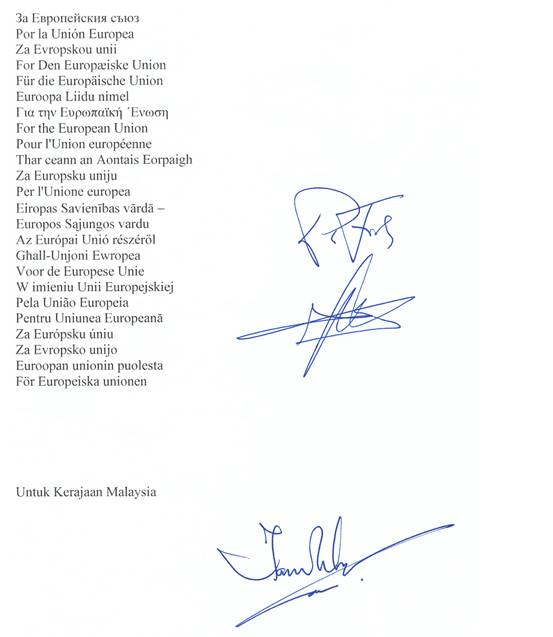 За Европейския съюз
Por la Unión Europea
Za Evropskou unii
For Den Europæiske Union
Für die Europäische Union
Euroopa Liidu nimel
Για την Ευρωπαϊκή ΄Ενωση
For the European Union
Pour l'Union européenne
Thar ceann an Aontais Eorpaigh
Za Europsku uniju
Per l'Unione europea
Eiropas Savienības vārdā –
Europos Sąjungos vardu
Az Európai Unió részéről
Għall-Unjoni Ewropea
Voor de Europese Unie
W imieniu Unii Europejskiej
Pela União Europeia
Pentru Uniunea Europeană
Za Európsku úniu
Za Evropsko unijo
Euroopan unionin puolesta
För Europeiska unionen
Untuk Kerajaan Malaysia